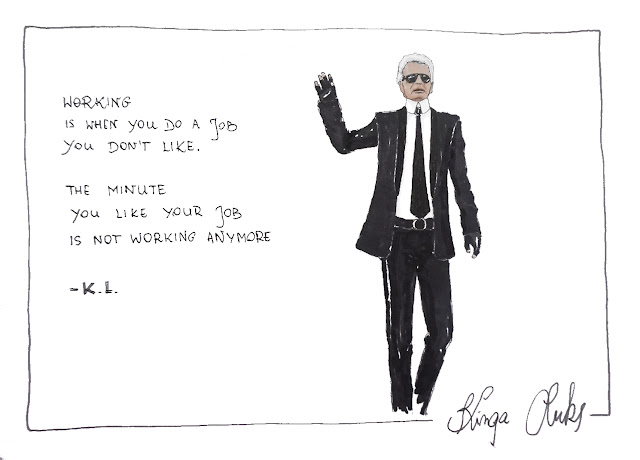 WORKING
IS WHEN YOU DO A JOB
YOU DON'T LIKE.
THE MINUTE
YOU LIKE YOUR JOB
IS NOT WORKING ANYMORE
-K.L.
Kinga